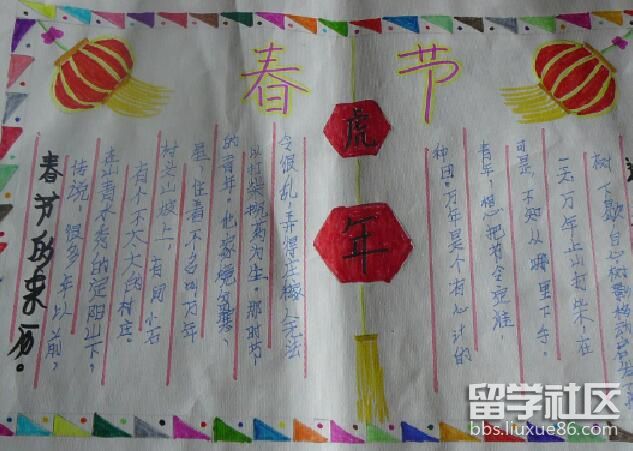 春节
虎年
春节的来历。
传说，很多年以前，
在山青水秀的定阳山下，
有个不太大的村庄。
村头山坡上，有间小石
屋，住着不多叫万年
的青年。他家境贫寒，
以打柴挖药为生。那时节
令很乱，弄得庄稼人无法
种田。万年是个有心计的
青年，想把节令定准，
可是，不知从哪里下手。
一天，万年上山打柴，在
树下歇息，树影移动
留学社区
bbs.liuxue86.com